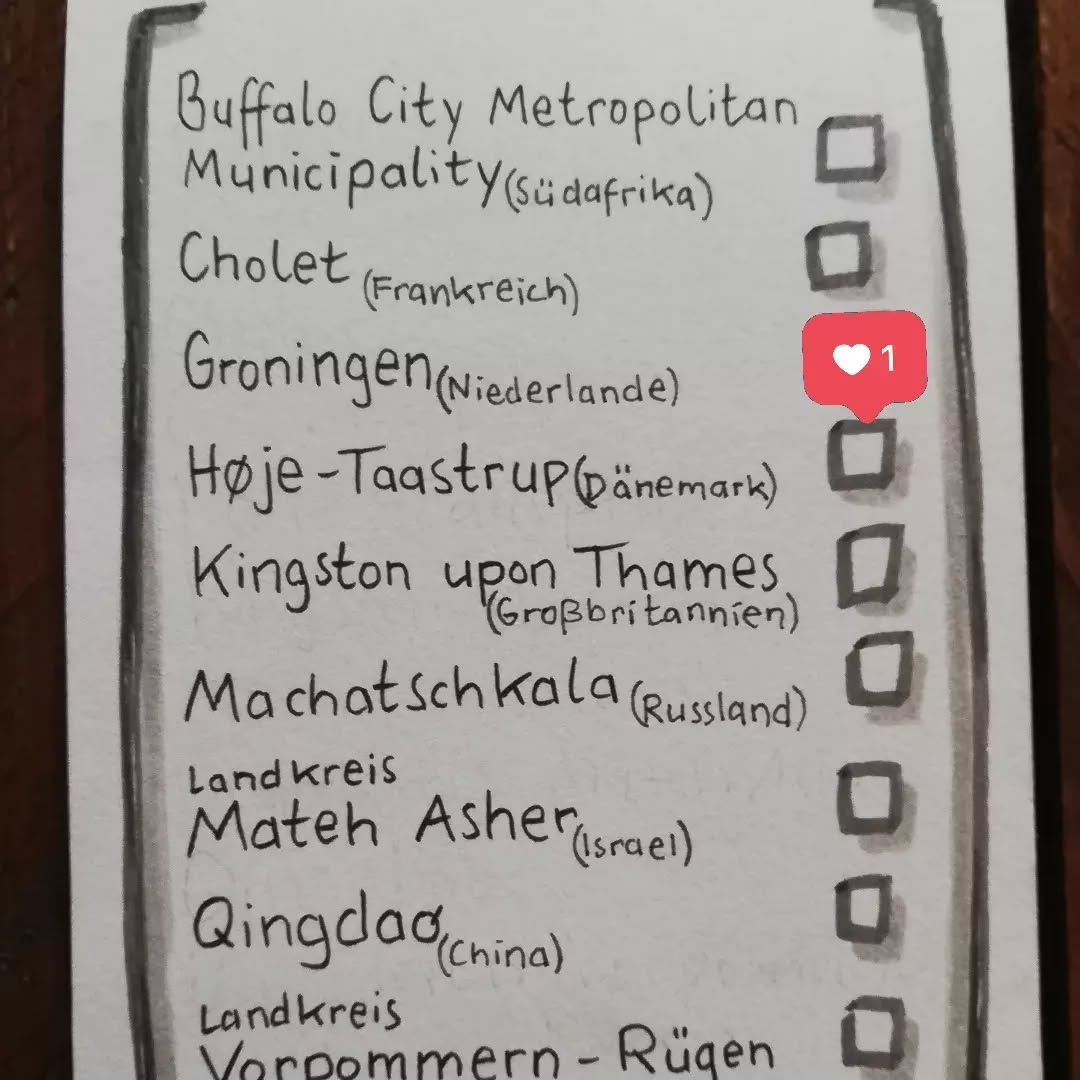 Buffalo City Metropolitan
Municipality (Südafrika)
Cholet (Frankreich)
Groningen (Niederlande)
1
Høje-Taastrup (Dänemark)
Kingston upon Thames
(Großbritannien)
Machatschkala (Russland)
Landkreis
Mateh Asher (Israel)
Qingdao (China)
Landkreis
Vorpommern-Rügen